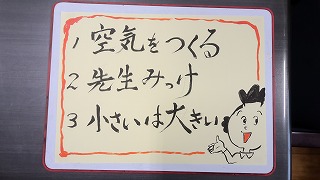 1 空気をつくる
2 先生みっけ
3 小さいは大きい